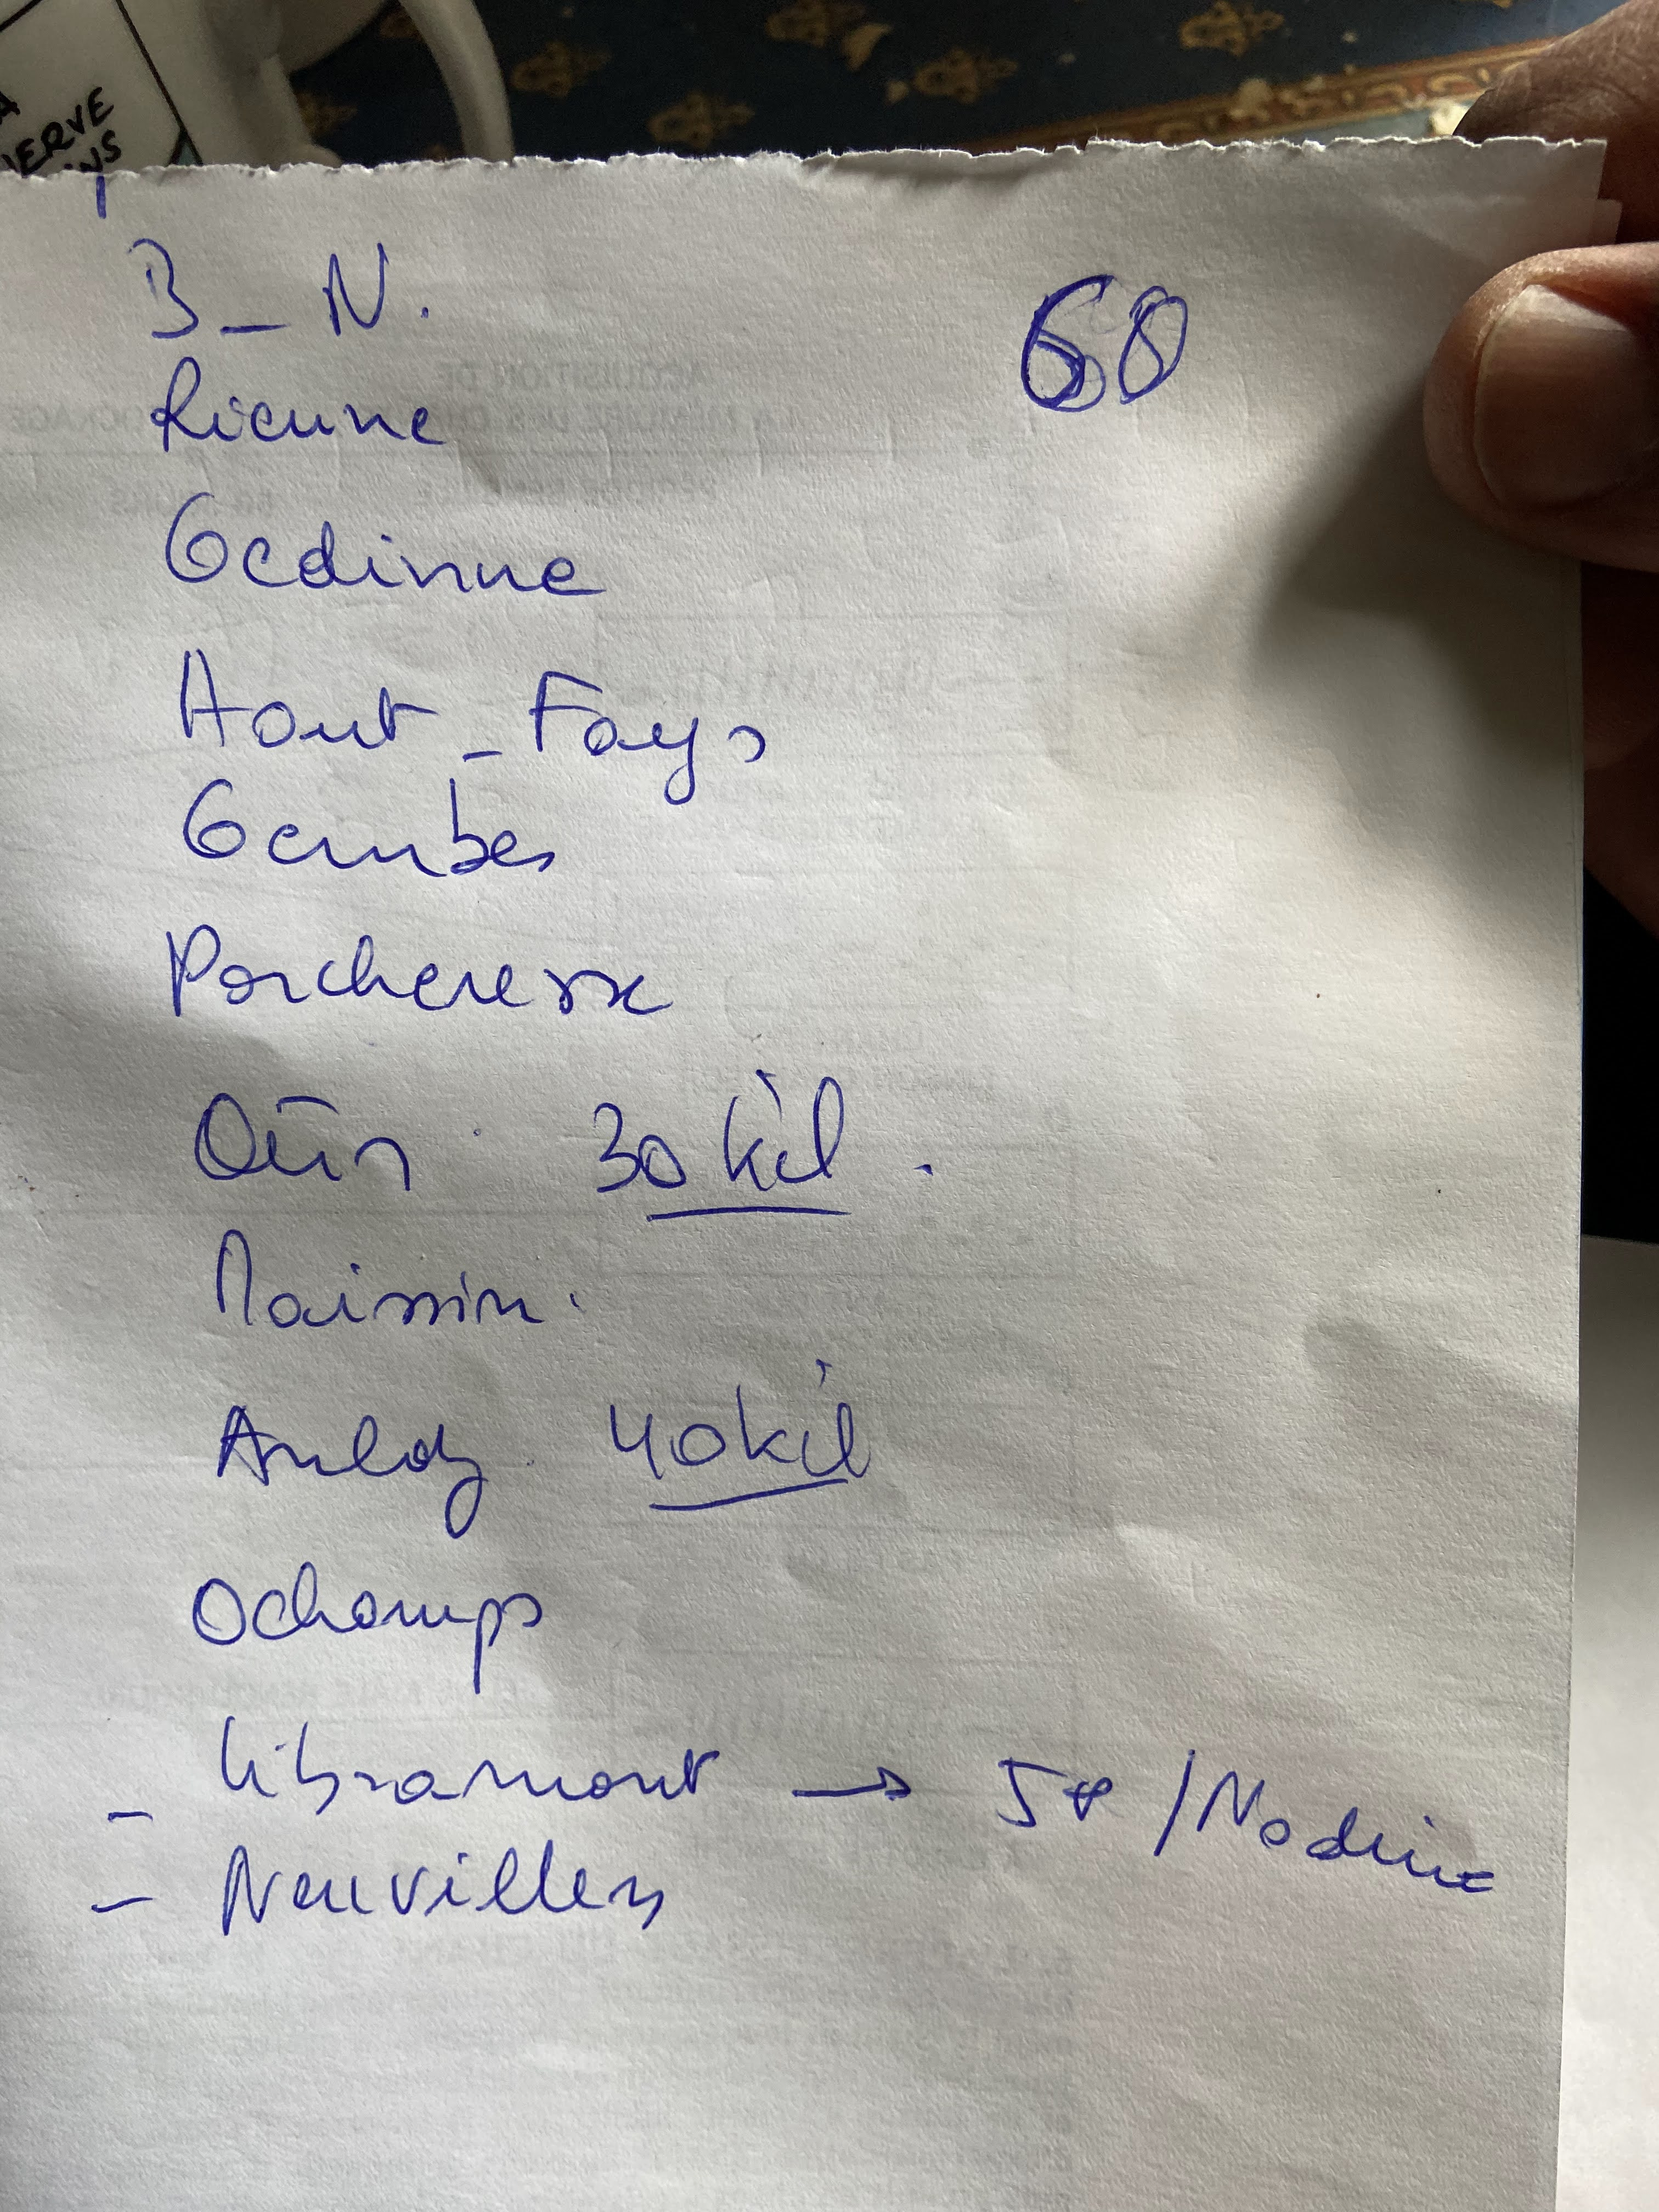 ERVE
NS
B_N. 60
Rienne
Gedinne
Haut_Fays
Gembes
Porcheresse
Our. 30 kil.
Maissin.
Anloy. 40 kil
Ochamps
_ Libramont → 58 / Nadine
_ Neuvillers